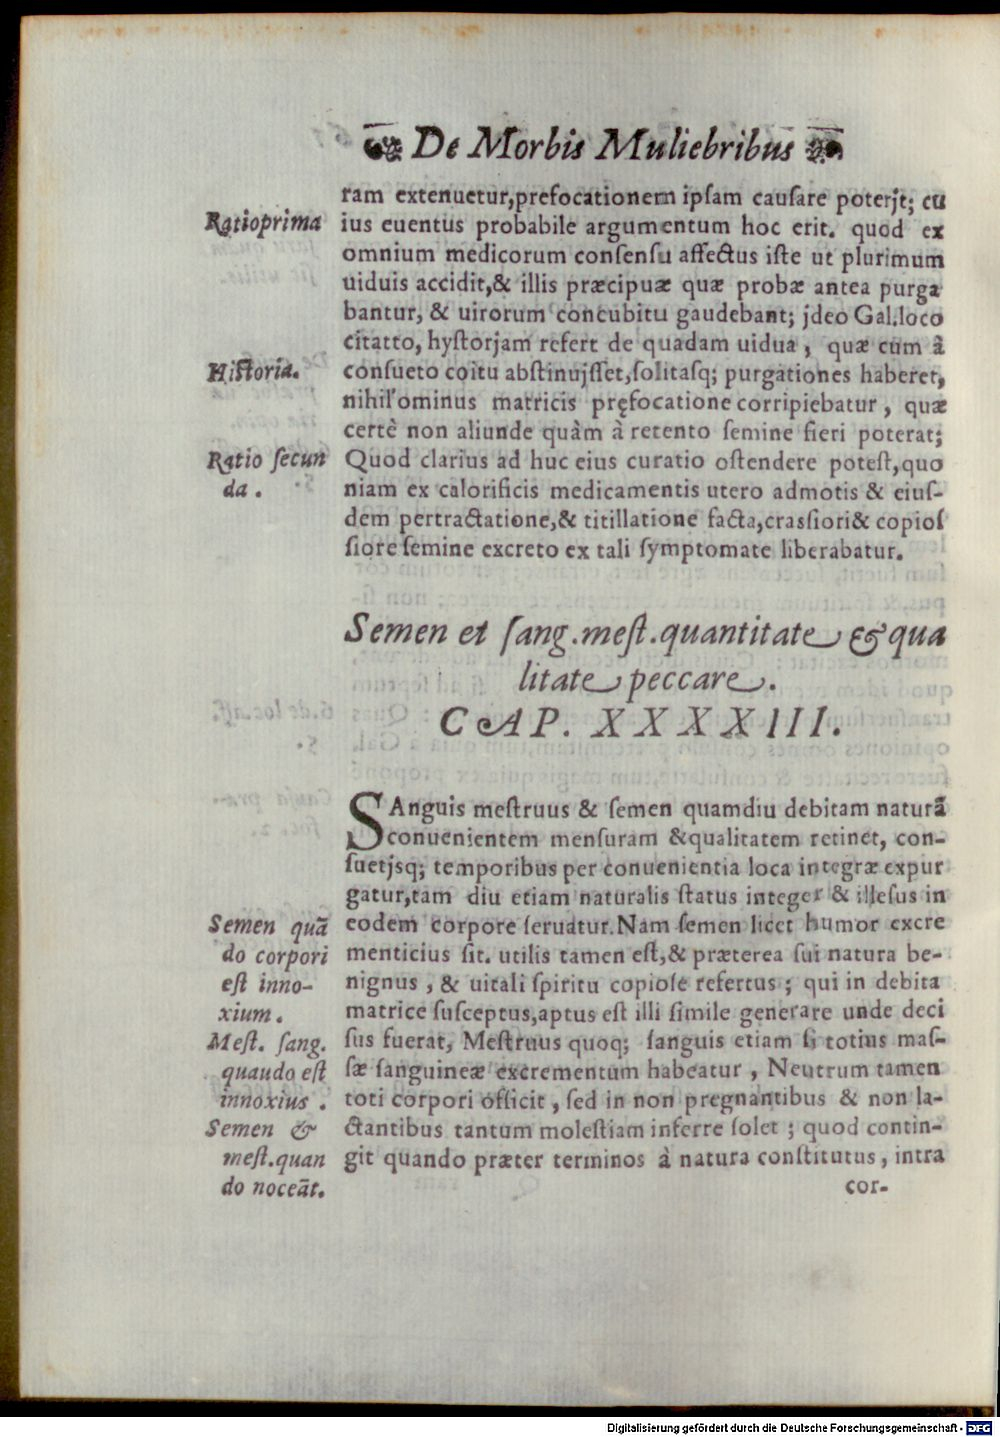 De Morbis Muliebribus
ram extenuetur,prefocationem ipſam cauſare poterjt; cu
Ratio prima
ius euentus probabile argumentum hoc erit. quod ex
omnium medicorum conſenſu affectus iſte ut plurimum
uiduis accidit,& illis præcipuæ quæ probæ antea purga
bantur, & uirorum concubitu gaudebant; jdeo Gal.loco
citatto, hyſtorjam refert de quadam uidua, quæ cum à
Hiſtoria.
conſueto coitu abſtinujſſet,ſolitaſq; purgationes haberet,
nihilominus matricis pręfocatione corripiebatur, quæ
certè non aliunde quàm à retento ſemine fieri poterat;
Ratio ſecun
da.
Quod clarius ad huc eius curatio oſtendere poteſt,quo
niam ex calorificis medicamentis utero admotis & eiuſ-
dem pertractatione,& titillatione facta,crasſiori& copioſ
ſiore ſemine excreto ex tali ſymptomate liberabatur.
Semen et ſang.meſt.quantitate & qua
litate peccare.
CAP. XXXXIII.
SAnguis meſtruus & ſemen quamdiu debitam naturã
conuenientem menſuram &qualitatem retinet, con-
ſuetjsq; temporibus per conuenientia loca integræ expur
gatur,tam diu etiam naturalis ſtatus integer & illeſus in
Semen quã
do corpori
eſt inno-
xium.
eodem corpore ſeruatur.Nam ſemen licet humor excre
menticius ſit. utilis tamen eſt,& præterea ſui natura be-
nignus, & uitali ſpiritu copioſe refertus; qui in debita
matrice ſuſceptus,aptus eſt illi ſimile generare unde deci
Meſt. ſang.
quaudo eſt
innoxius.
ſus fuerat, Meſtruus quoq; ſanguis etiam ſi totius maſ-
ſæ ſanguineæ excrementum habeatur, Neutrum tamen
toti corpori officit, ſed in non pregnantibus & non la-
Semen &
meſt.quan
do noceãt.
ctantibus tantum moleſtiam inferre ſolet; quod contin-
git quando præter terminos à natura conſtitutus, intra
cor-
Digitalisierung gefördert durch die Deutsche Forschungsgemeinschaft - DFG